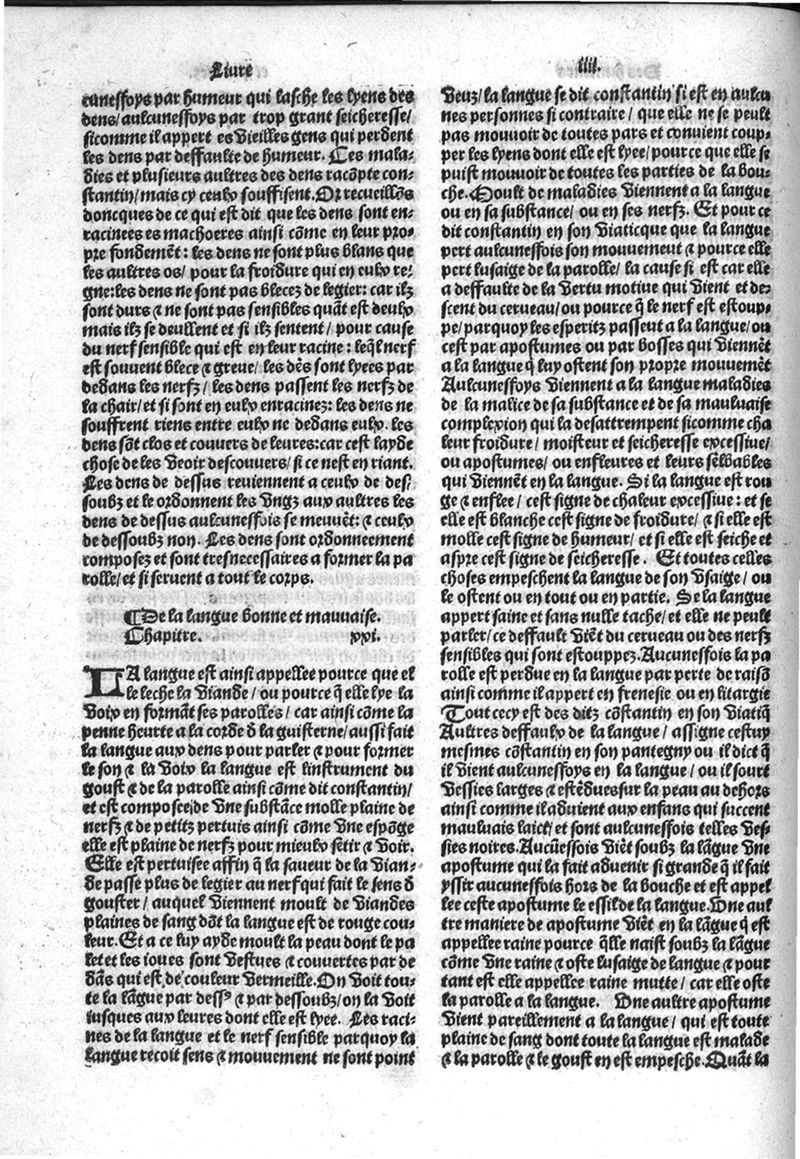 Liure
iiii.
cunessoys par humeur qui lasche les lyens des
dens/aulcunessoys par trop grant seicheresse/
sicomme il appert es vieilles gens qui perdent
les dens par deffaulte de humeur. Ces mala-
dies et plusieurs aultres des dens racõpte con-
stantin/mais cy ceulx souffisent. Or recueillõs
doncques de ce qui est dit que les dens sont en-
racinees es machoeres ainsi cõme en leur pro-
pre fondemẽt: les dens ne sont plus blans que
les aultres os/ pour la froidure qui en eulx re-
gne: les dens ne sont pas blecez de legier: car ilz
sont durs & ne sont pas sensibles quãt est deulx
mais ilz se deullent et si ilz sentent/ pour cause
du nerf sensible qui est en leur racine: leq̃l nerf
est souuent blece & greue/ les dẽs sont lyees par
dedans les nerfz/ les dens passent les nerfz de
la chair/ et si sont en eulx enracinez: les dens ne
souffrent riens entre eulx ne dedans eulx. les
dens sõt clos et couuers de leures: car cest layde
chose de les veoir descouuers/ si ce nest en riant.
Les dens de dessus reuiennent a ceulx de des-
soubz et le ordonnent les vngz aux aultres les
dens de dessus aulcunesfois se meuuẽt: & ceulx
de dessoubz non. Les dens sont ordonneement
composez et sont tresnecessaires a former la pa
rolle/ et si seruent a tout le corps.
¶De la langue bonne et mauuaise.
Chapitre. xxi.
LA langue est ainsi appellee pource que el
le leche la viande/ ou pource q̃ elle lye la
voix en formãt ses parolles/ car ainsi cõme la
penne heurte a la corde d̃ la guisterne/ aussi fait
la langue aux dens pour parler & pour former
le son & la voix la langue est linstrument du
goust & de la parolle ainsi cõme dit constantin/
et est composee de vne substãce molle plaine de
nerfz & de petitz pertuis ainsi cõme vne espõge
elle est plaine de nerfz pour mieulx sẽtir & voir.
Elle est pertuisee affin q̃ la saueur de la vian-
de passe plus de legier au nerf qui fait le sens d̃
gouster/ auquel viennent moult de viandes
plaines de sang dõt la langue est de rouge cou-
leur. Et a ce luy ayde moult la peau dont le pa
let et les ioues sont vestues & couuertes par de
dãs qui est de couleur vermeille. On voit tou-
te la lãgue par dessꝰ & par dessoubz/ on la voit
iusques aux leures dont elle est lyee. Les raci-
nes de la langue et le nerf sensible parquoy la
langue recoit sens & mouuement ne sont point
veuz/ la langue se dit constantin si est en aulcu
nes personnes si contraire/ que elle ne se peult
pas mouuoir de toutes pars et conuient coup-
per les lyens dont elle est lyee/ pource que elle se
puist mouuoir de toutes les parties de la bou-
che. Moult de maladies viennent a la langue
ou en sa substance/ ou en ses nerfz. Et pour ce
dit constantin en son viaticque que la langue
pert aulcunesfois son mouuement & pource elle
pert lusaige de la parolle/ la cause si est car elle
a deffaulte de la vertu motiue qui vient et de-
scent du cerueau/ ou pource q̃ le nerf est estoup-
pe/ parquoy les esperitz passeut a la langue/ ou
cest par apostumes ou par bosses qui viennẽt
a la langue q̃ lay ostent son propre mouuemẽt
Aulcunessoys viennent a la langue maladies
de la malice de sa substance et de sa mauluaise
complexion qui la desattrempent sicomme cha
leur froidure/ moisteur et seicheresse excessiue/
ou apostumes/ ou enfleures et leurs sẽblables
qui viennẽt en la langue. Si la langue est rou
ge & enflee/ cest signe de chaleur excessiue: et se
elle est blanche cest signe de froidure/ & si elle est
molle cest signe de humeur/ et si elle est seiche et
aspre cest signe de seicheresse. Et toutes celles
choses empeschent la langue de son vsaige/ ou
le ostent ou en tout ou en partie. Se la langue
appert saine et sans nulle tache/ et elle ne peult
parler/ ce deffault viẽt du cerueau ou des nerfz
sensibles qui sont estouppez. Aucunesfois la pa
rolle est perdue en la langue par perte de raisõ
ainsi comme il appert en frenesie ou en litargie
Tout cecy est des ditz cõstantin en son viatiq̃
Aultres deffaulx de la langue/ assigne cestuy
mesmes cõstantin en son pantegny ou il dict q̃
il vient aulcunessoys en la langue/ ou il sourt
vessies larges & estẽdues sur la peau au dehors
ainsi comme il aduient aux enfans qui succent
mauluais laict/ et sont aulcunesfois telles ves-
sies noires. Aucũesfois viẽt soubz la lãgue vne
apostume qui la fait aduenir si grande q̃ il fait
yssir aucunesfois hors de la bouche et est appel
lee ceste apostume le essil de la langue. Une aul
tre maniere de apostume viẽt en la lãgue q̃ est
appellee raine pource q̃lle naist soubz la lãgue
cõme vne raine & oste lusaige de langue & pour
tant est elle appellee raine mutte/ car elle oste
la parolle a la langue. Une aultre apostume
vient pareillement a la langue/ qui est toute
plaine de sang dont toute la langue est malade
& la parolle & le goust en est empesche. Quãt la